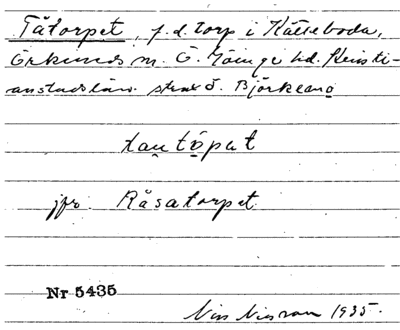 Tåtorpet, f.d. torp i Kätteboda,
Örkeneds sn. Ö. Göinge hd. Kristi-
anstads län. strax ö. Björkenö
tau̯tǫpət
jfr. Råsatorpet
Nr 5435
Nils Nilsson 1935.